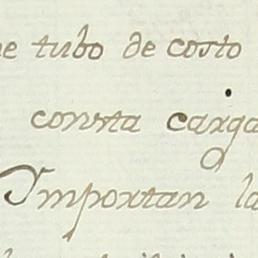 tubo de costo
consta carga
Importan la